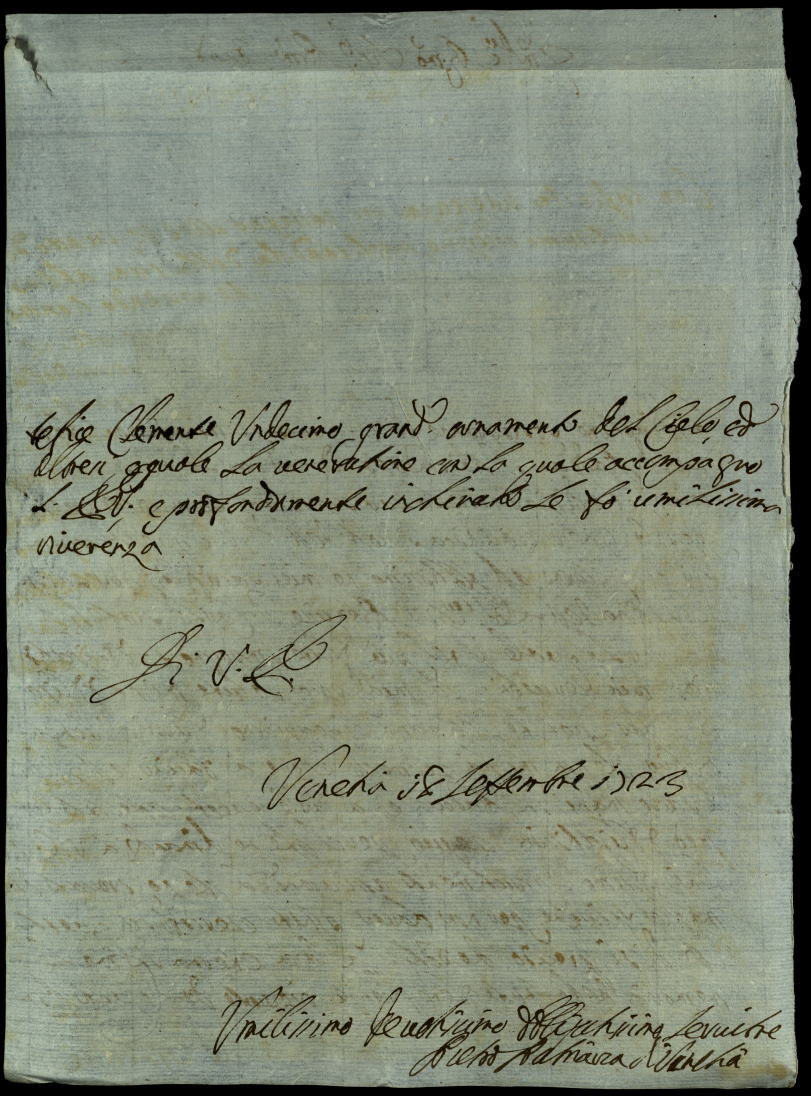 tefice Clemente Undecimo grand' ornamento del Cielo, ed
altresi quale la veneratione con la quale accompagno
e profondamente inchinato le fò umilissima
riverenza
Di V. E.
Venetia 18 Settembre 1723
Umilissimo Devotissimo Obligatissimo Servitore
Pietro Patriarca di Venetia